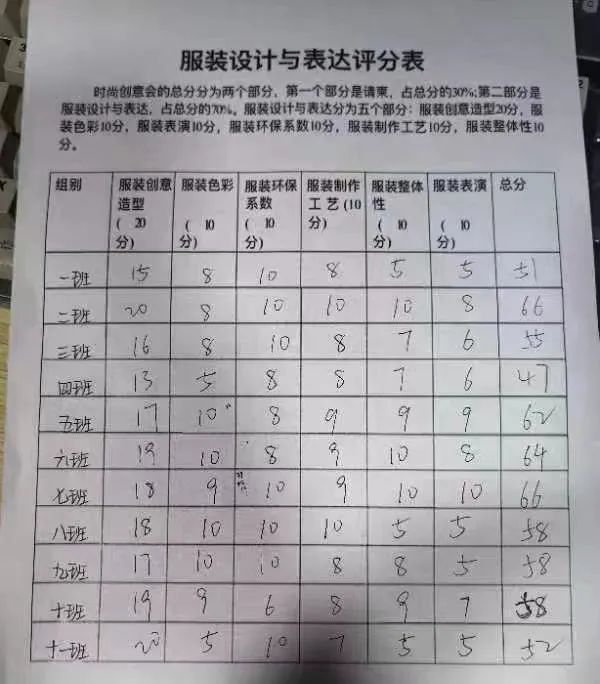 服装设计与表达评分表
时尚创意会的总分分为两个部分，第一个部分是请柬，占总分的30%;第二部分是
服装设计与表达，占总分的70%。服装设计与表达分为五个部分：服装创意造型20分，服
装色彩10分，服装表演10分，服装环保系数10分，服装制作工艺10分，服装整体性10
分。
组别 服装创意造型( 20分) 服装色彩( 10分) 服装环保系数( 10分) 服装制作工艺(10分) 服装整体性( 10分) 服装表演( 10分) 总分
一班 15 8 10 8 5 5 51
二班 20 8 10 10 10 8 66
三班 16 8 10 8 7 6 55
四班 13 5 8 8 7 6 47
五班 17 10 8 9 9 9 62
六班 19 10 8 9 10 8 64
七班 18 9 10 9 10 10 66
八班 18 10 10 10 5 5 58
九班 17 10 10 8 8 5 58
十班 19 9 6 8 9 7 58
十一班 20 5 10 7 5 5 52